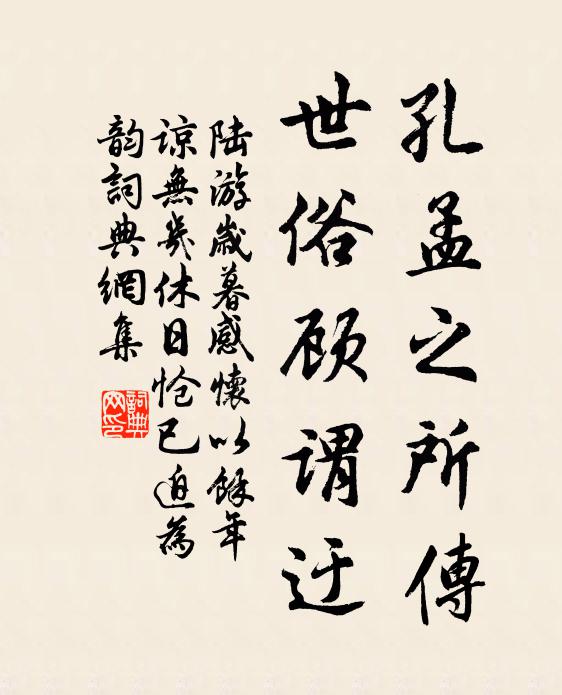 孔孟之所傳
世俗顾謂迂
陆游歲暮感懷以餘年
諒無幾休日怆已迫為
韵詞典網集
詞典
网印